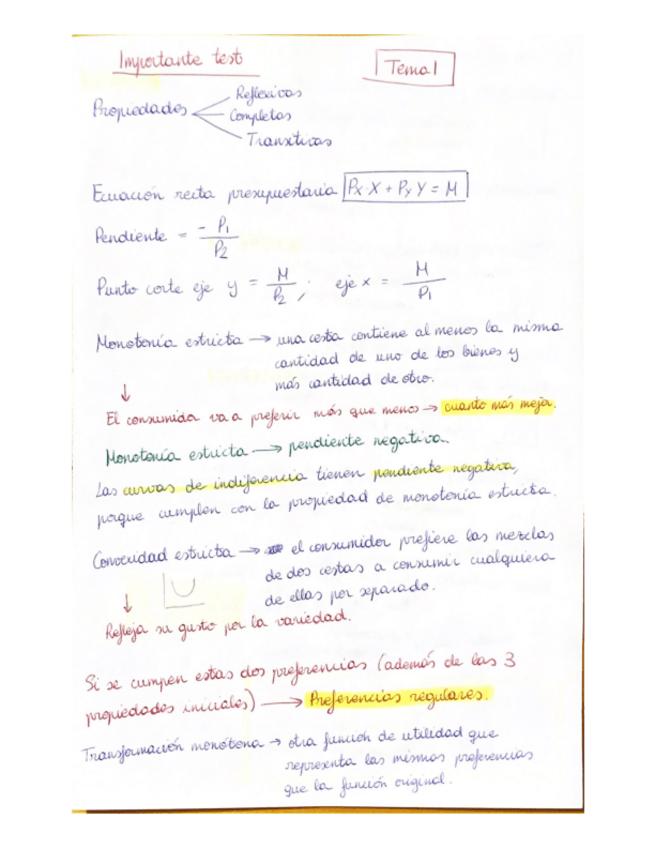 Importante test
Tema 1
Propiedades
Reflexivas
Completas
Transitivas
Ecuación recta presupuestaria Px·X + Py Y = M
Pendiente = - P1 / P2
Punto corte eje y = M / P2 ; eje x = M / P1
Monotonía estricta → una cesta contiene al menos la misma
cantidad de uno de los bienes y
más cantidad de otro.
↓
El consumidor va a preferir más que menos → cuanto más mejor.
Monotonía estricta → pendiente negativa.
Las curvas de indiferencia tienen pendiente negativa,
porque cumplen con la propiedad de monotonía estricta.
Convexidad estricta → el consumidor prefiere las mezclas
de dos cestas a consumir cualquiera
de ellas por separado.
↓
Refleja su gusto por la variedad.
Si se cumpen estas dos preferencias (además de las 3
propiedades iniciales) → Preferencias regulares.
Transformación monótona → otra función de utilidad que
representa las mismas preferencias
que la función original.